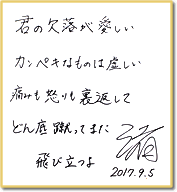 君の欠落が愛しい
カンペキなものは虚しい
痛みも怒りも裏返して
どん底蹴ってまた
飛び立つよ
2017.9.5